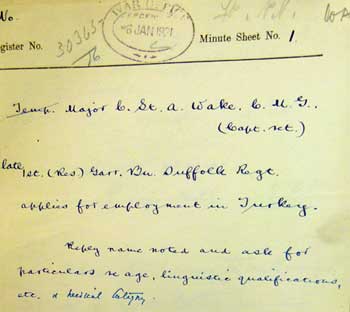 No.
Register No. 30363/16
WAR OFFICE
6 JAN 1921
Minute Sheet No. 1
Temp. Major C. St. A. Wake, C.M.G.,
(Capt. ret.)
late 1st. (Res) Garr. Bn. Suffolk Regt.
applies for employment in Turkey.
Reply name noted and ask for
particulars re age, linguistic qualifications,
etc. & medical category.